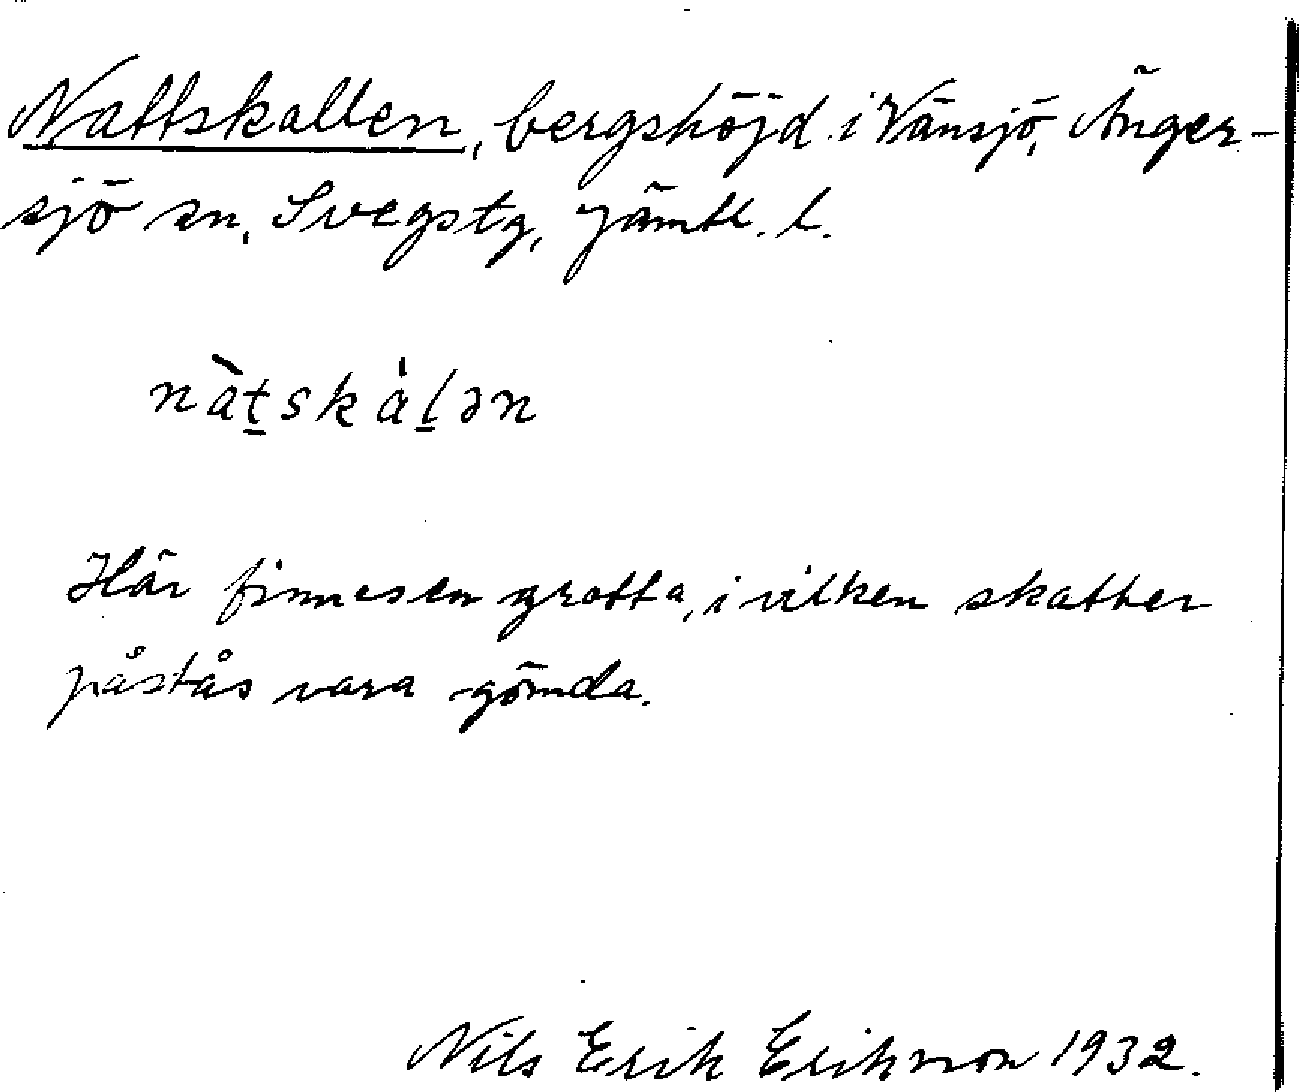 Nattskallen, bergshöjd i Vänsjö, Änger-
sjö sn, Svegs tg, Jämtl. l.
nàt̠skàl̠ən
Här finnes en grotta, i vilken skatter
påstås vara gömda.
Nils Erik Erikson 1932.